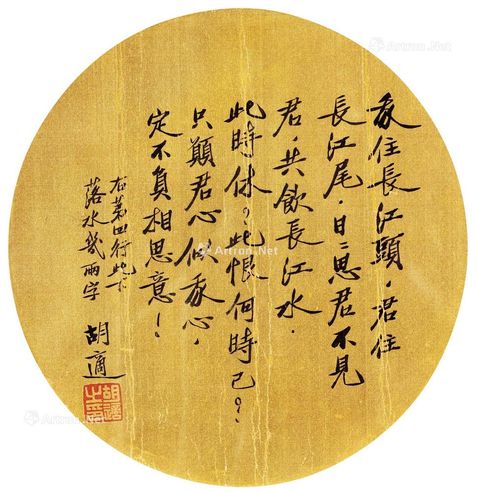 我住長江頭，君住
長江尾。日〻思君不見
君，共飲長江水。
此時休？此恨何時已？
只願君心似我心，
定不負相思意！
右苐四行此下
落水幾兩字
胡適
胡適之印
Artron.Net
Artron.Net
Artron.Net